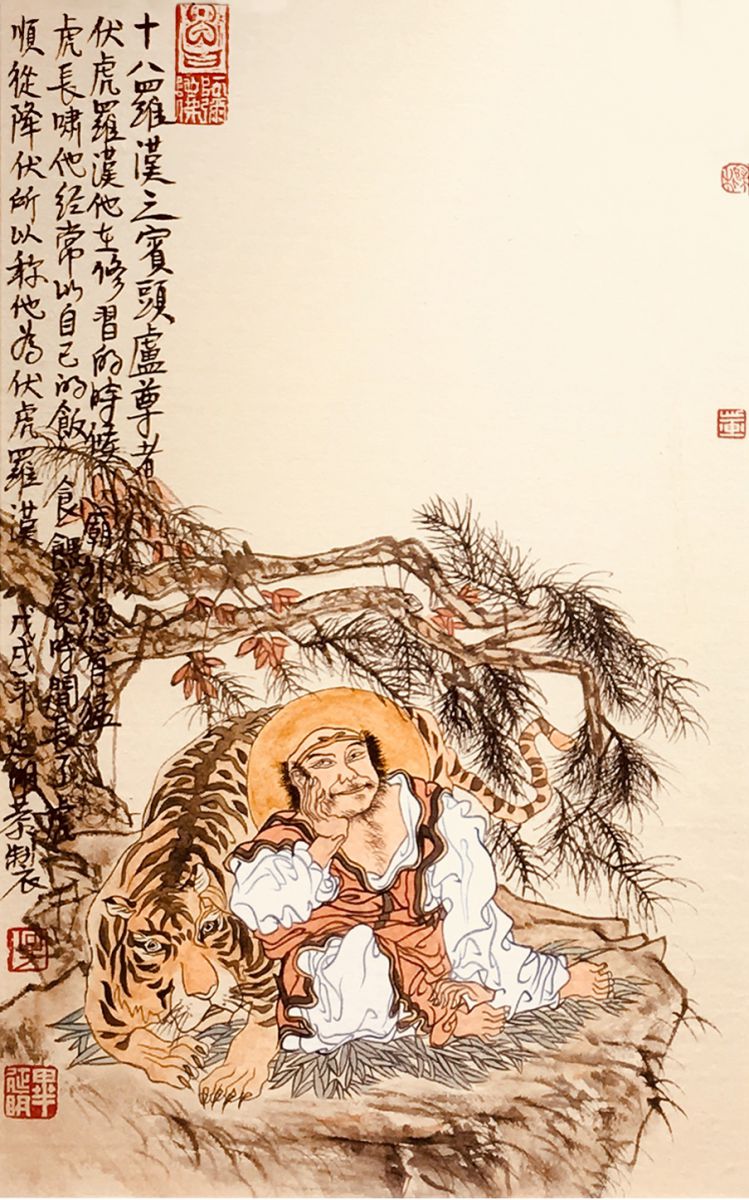 十八羅漢之賓頭盧尊者
伏虎羅漢他在修習的時候廟外總有猛
虎長嘯他经常以自己的飯食餵養時間長了虎
順從降伏所以称他為伏虎羅漢 戊戌年延明恭製
畢延明